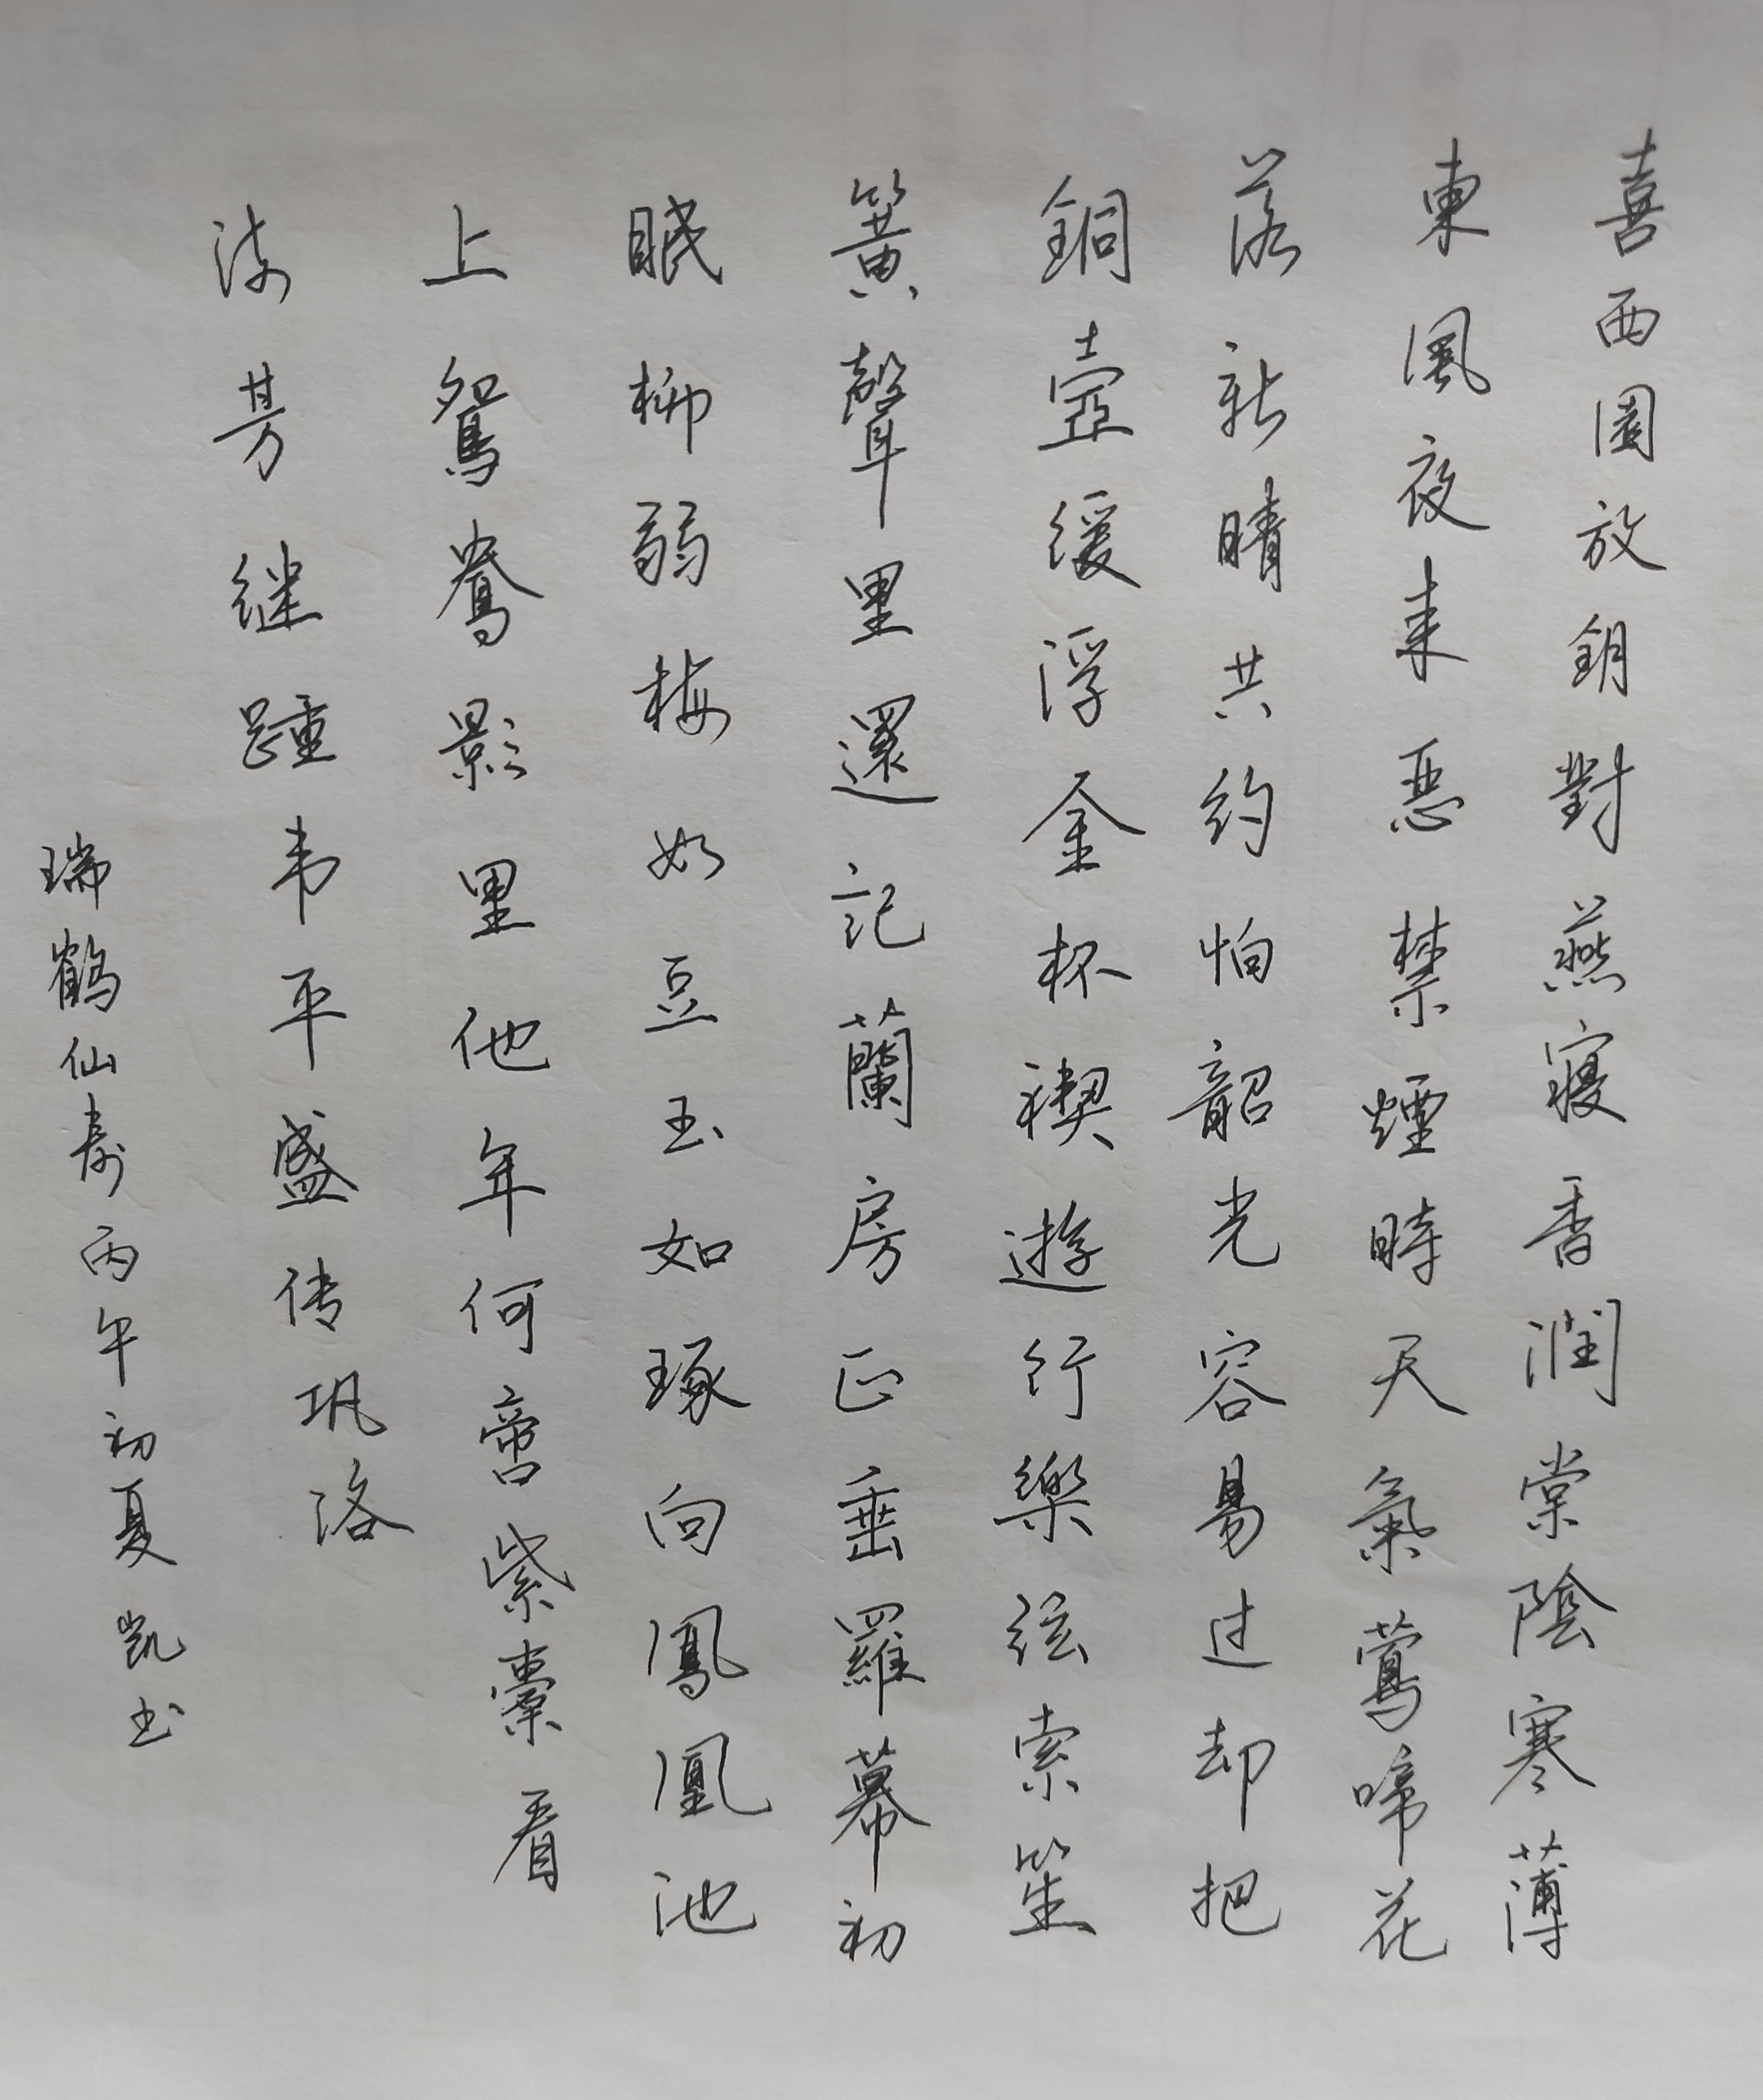 喜西園放鈅對燕寢香潤棠陰寒薄
東風夜来恶禁煙時天氣鶯啼花
落新晴共约怕韶光容易过却把
銅壺缓浮金杯禊遊行樂絃索笙
簧聲里還記蘭房正垂羅幕初
眠柳弱梅如豆玉如琢向鳳凰池
上鴛鴦影里他年何啻紫橐看
流芳继踵韦平盛传巩洛
瑞鶴仙寿丙午初夏凯书